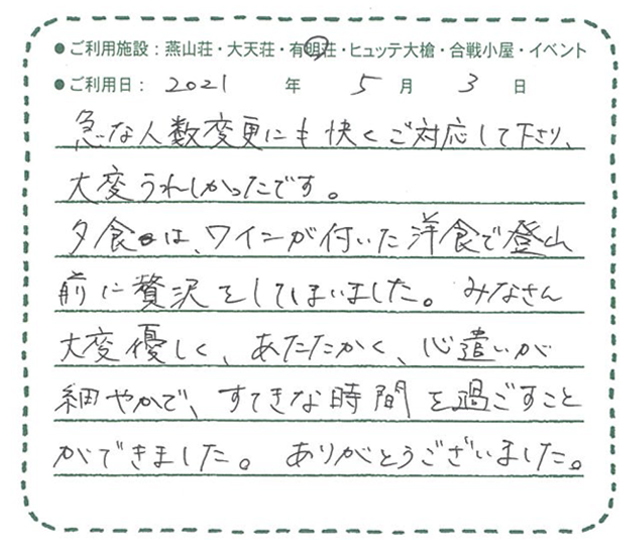 ●ご利用施設：燕山荘・大天荘・有明荘・ヒュッテ大槍・合戦小屋・イベント
●ご利用日： 2021 年 5 月 3 日
急な人数変更にも快くご対応して下さり、
大変うれしかったです。
夕食は、ワインが付いた洋食で登山
前に贅沢をしてしまいました。みなさん
大変優しく、あたたかく、心遣いが
細やかで、すてきな時間を過ごすこと
ができました。ありがとうございました。